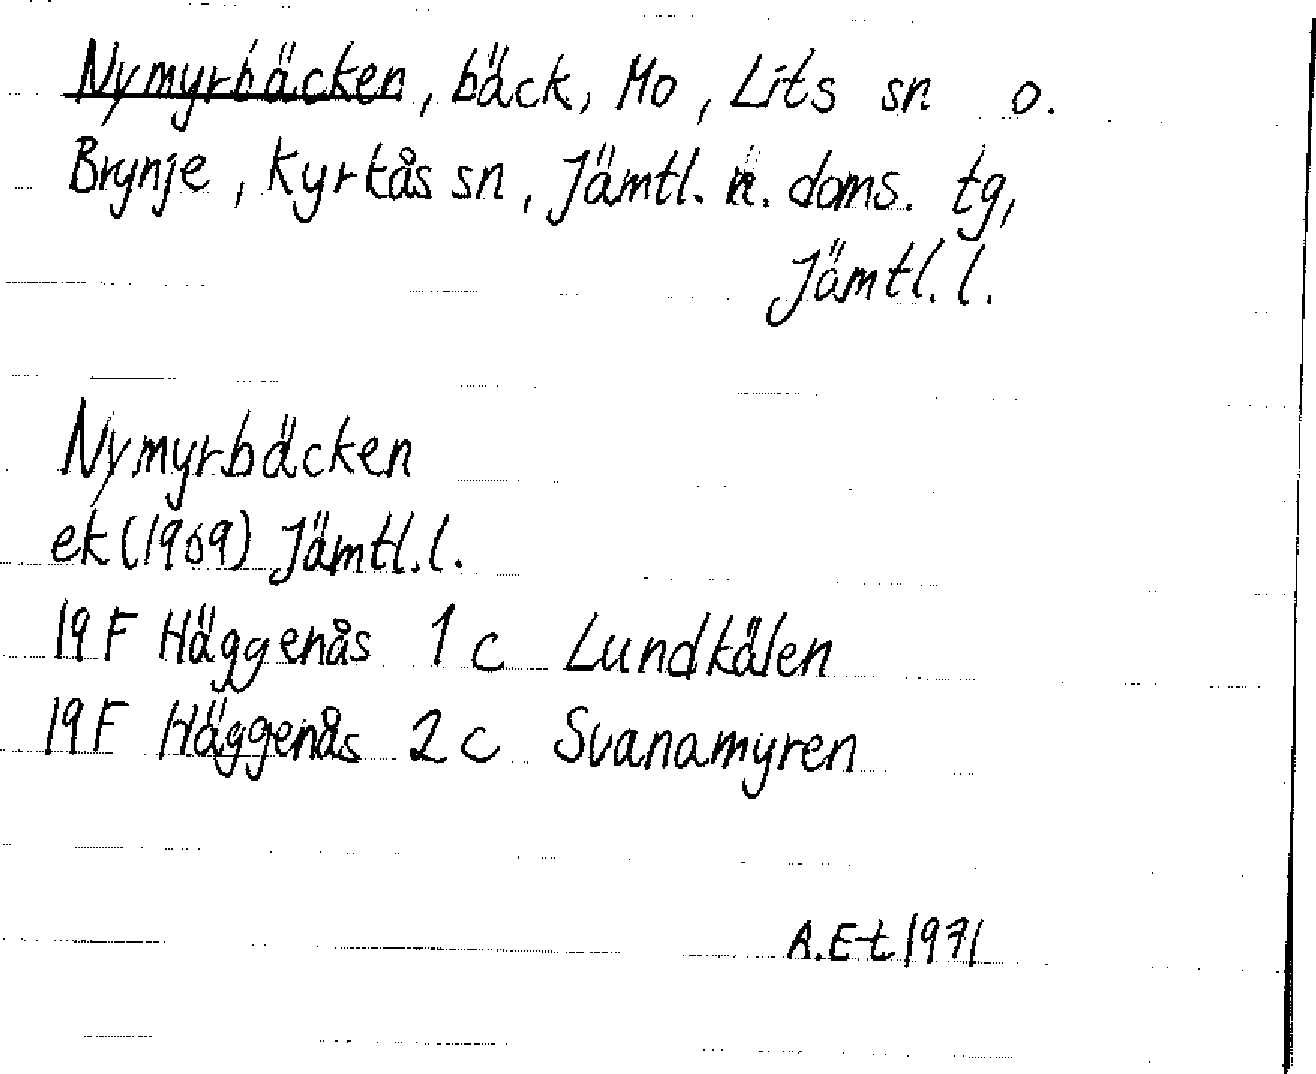 Nymyrbäcken, bäck, Mo, Lits sn o.
Brynje, Kyrkås sn, Jämtl. n. doms. tg,
Jämtl. l.
Nymyrbäcken
ek (1969) Jämtl. l.
19 F Häggenås 1 c Lundkälen
19 F Häggenås 2 c Svanamyren
A.E-t 1971